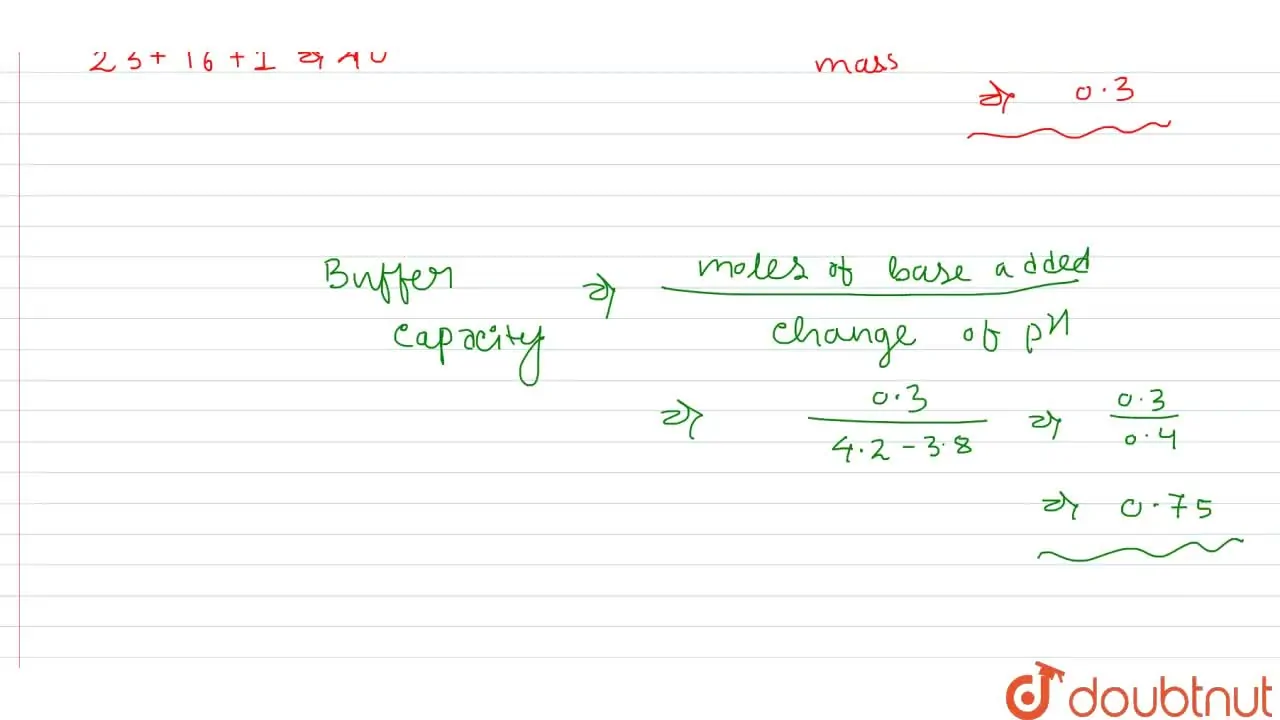 23+ 16 +1 ⇒ 40
mass
⇒ 0.3
Buffer capacity ⇒ moles of base added
change of pH
⇒ 0.3 ⇒ 0.3
4.2 - 3.8 0.4
⇒ 0.75
doubtnut